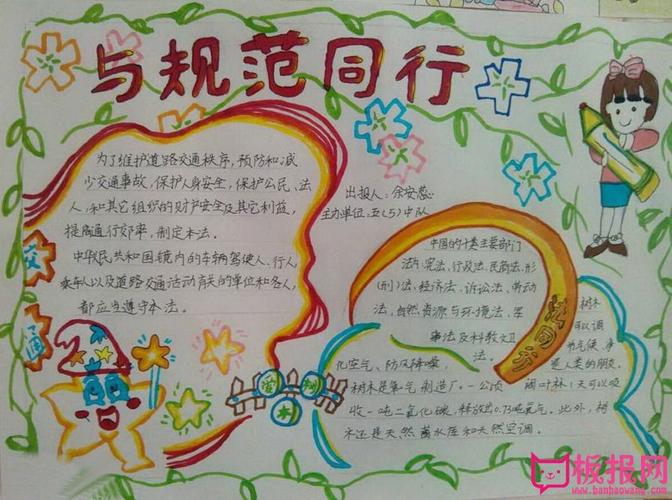 与规范同行
为了维护道路交通秩序,预防和减
少交通事故,保护人身安全,保护公民、法
人、和其它组织的财产安全及其它利益,
提高通行效率,制定本法。
中华民共和国境内的车辆驾驶人、行人、
乘车人以及道路交通活动有关的单位和各人,
都应当遵守本法。
出报人:余安蕊
主办单位:五(5)中队
中国的十类主要部门
法:宪法、行政法、民商法、刑
(刑)法、经济法、诉讼法、劳动
法、自然资源与环境法、军
事法及科教文卫
法。
法同行
交
通
树木
可以调
节气候、净
化空气、防风降噪,是人类的朋友。
树木是氧气制造厂,一公顷阔叶林1天可以吸
收一吨二氧化碳,释放出0.73吨氧气。此外,树
木还是天然蓄水库和天然空调。
板报网
www.banbaowang.com